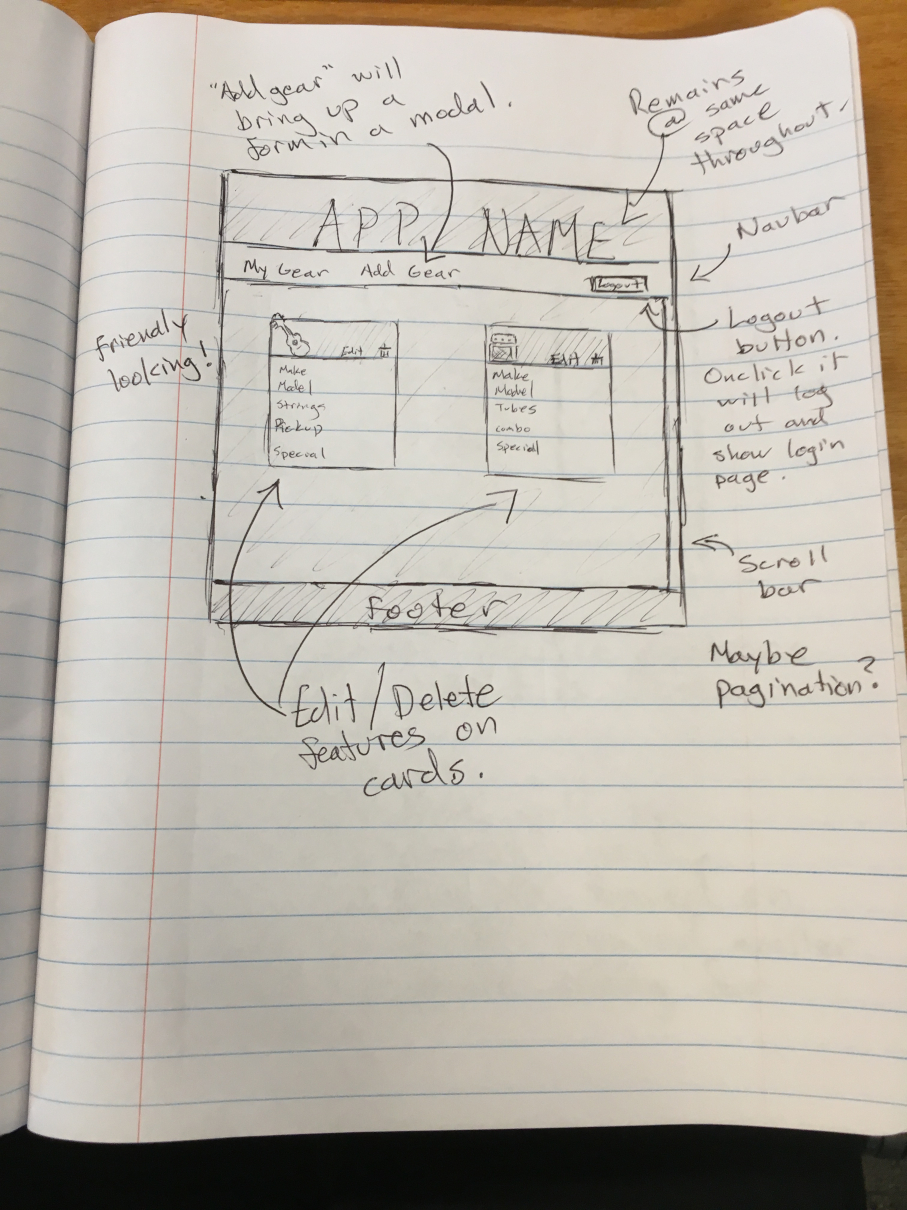 "Add gear" will
bring up a
form in a modal.
Remains
@ same
space
throughout.
APP NAME
Navbar
My Gear Add Gear
Logout
Logout
button.
Onclick it
will log
out and
show login
page.
friendly
looking!
Edit
Make
Model
Strings
Pickup
Special
Edit
Make
Model
Tubes
combo
Special
Scroll
bar
footer
Maybe
pagination?
Edit/Delete
features on
cards.